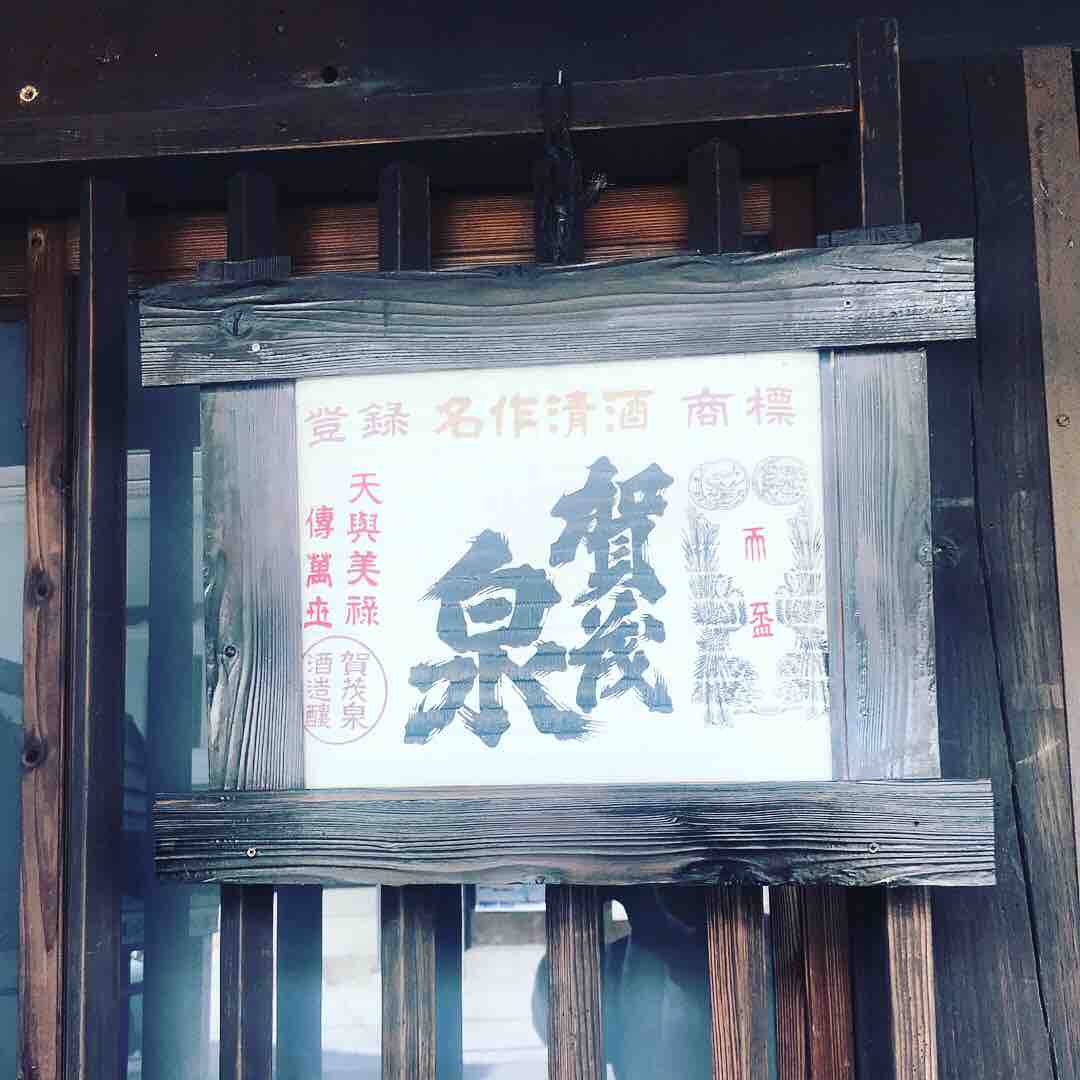 登録 名作清酒 商標
賀茂
泉
天與美祿
傳萬世
賀茂泉
酒造釀